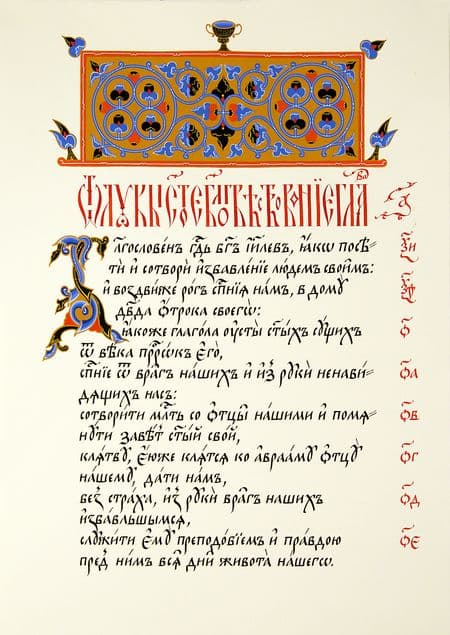 Ѿ лꙋкѝ ст҃о́е бл҃говѣствова́нїе глава̀ а҃
Бл҃гослове́нъ гдⷭ҇ь бг҃ъ і҆и҃левъ, ꙗ҆́кѡ посѣ- ѯ҃и
тѝ и҆ сотворѝ и҆збавле́нїе лю́демъ свои̑мъ:
и҆ воздви́же ро́гъ сп҃се́нїѧ на́мъ, в домꙋ̀ ѯ҃ѳ
дв҃да ѻ҆́трока своегѡ̀:
ꙗ҆́коже глаго́ла ᲂу҆сты̀ ст҃ы́хъ сꙋ́щихъ ѻ҃
ѿ вѣ́ка прⷪ҇ро́къ є҆гѡ̀,
сп҃се́нїе ѿ вра̑гъ на́шихъ и҆ и҆з̾ рꙋкѝ ненави́- ѻ҃а
дѧщихъ на́съ:
сотвори́ти млⷭ҇ть со ѻ҆тцы̑ на́шими и҆ помѧ- ѻ҃в
нꙋ́ти завѣ́тъ ст҃ы́й сво́й,
клѧ́твꙋ, є҆́юже клѧ́тсѧ ко а҆враа́мꙋ ѻ҆тцꙋ̀ ѻ҃г
на́шемꙋ, да́ти на́мъ,
без̾ стра́ха, и҆з̾ рꙋкѝ вра̑гъ на́шихъ ѻ҃д
и҆зба́вльшымсѧ,
слꙋжи́ти є҆мꙋ̀ преподо́бїемъ и҆ пра́вдою ѻ҃є
пред̾ ни́мъ всѧ̑ дни̑ живота̀ на́шегѡ.